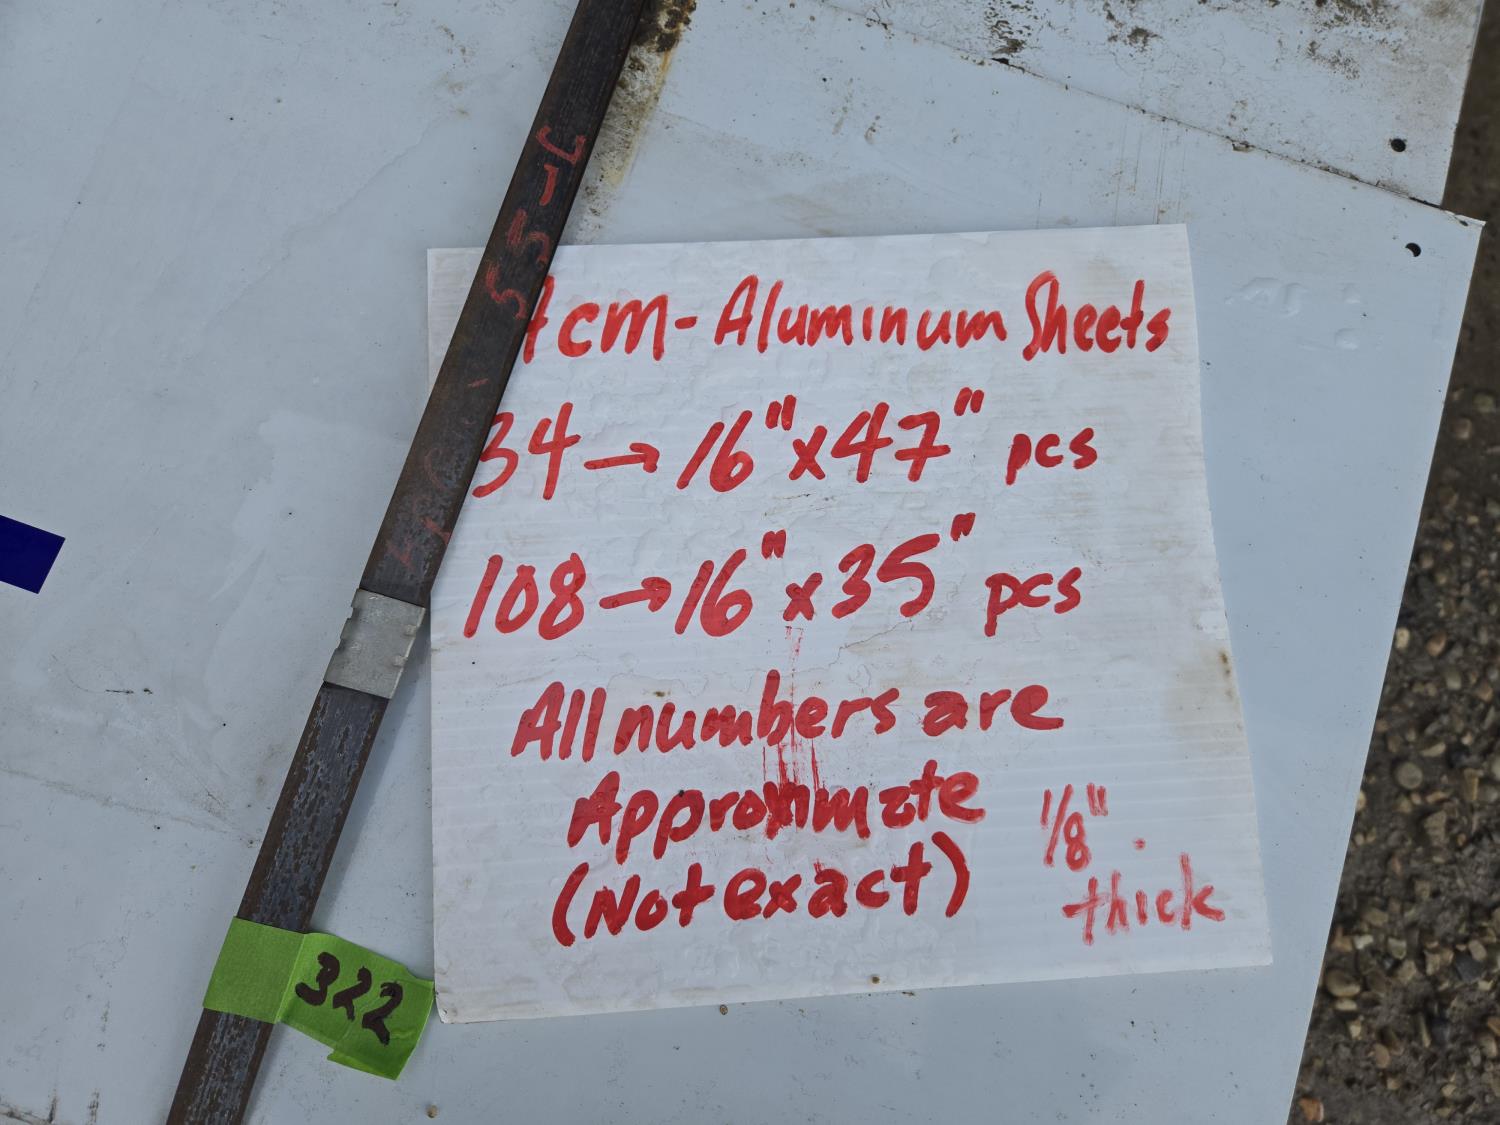 ACM-Aluminum Sheets
34→16"x47" pcs
108→16"x35" pcs
All numbers are
Approximate
(Not exact)
1/8"
thick
322